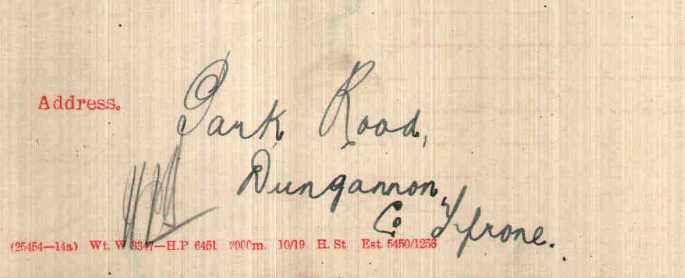 Address. Park Road,
Dungannon,
Co Tyrone.
(25454—14a) Wt. W 3347—H.P 6451 2000m. 10/19 H. St Est. 5450/1256